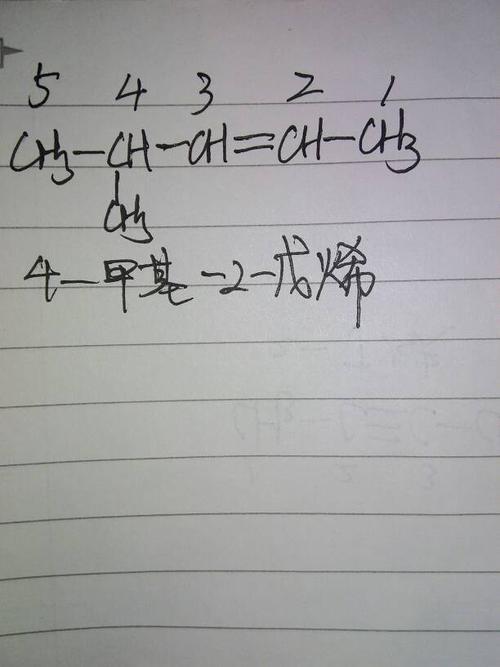 5 4 3 2 1
CH3-CH-CH=CH-CH3
CH3
4-甲基-2-戊烯